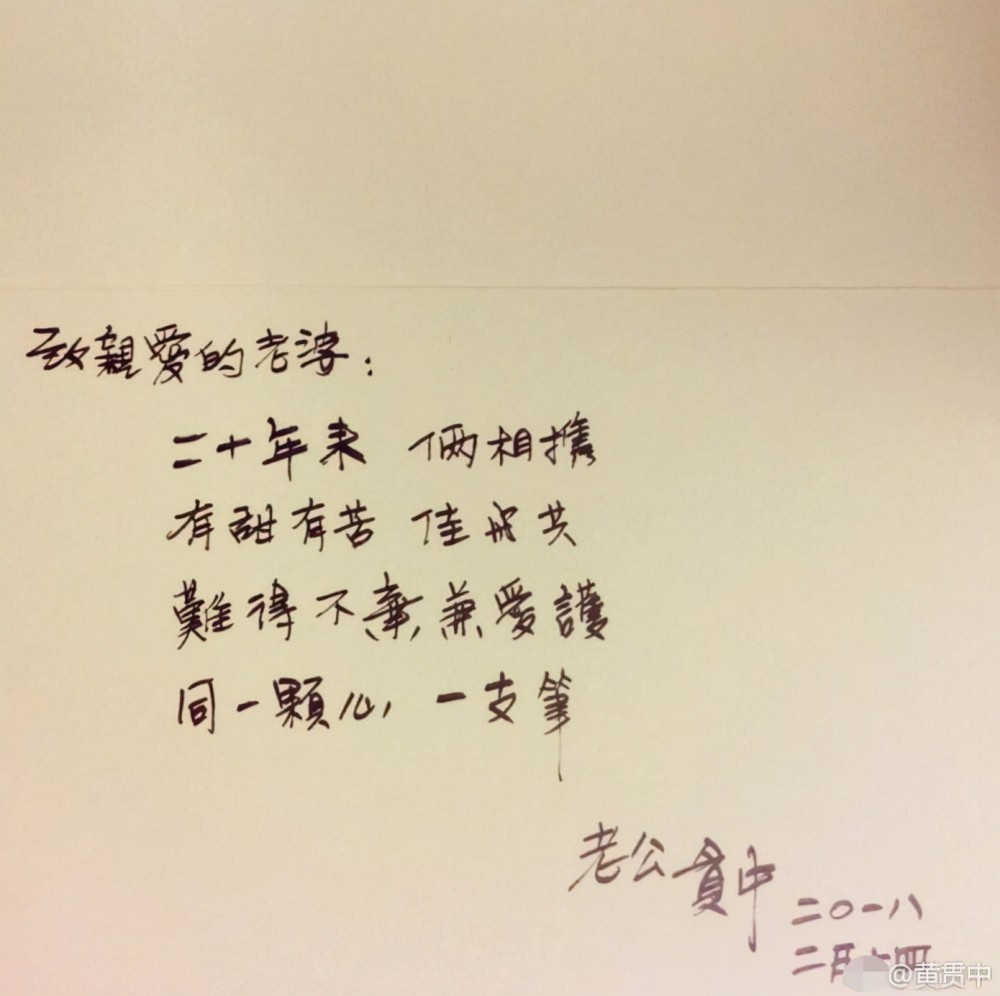 致親愛的老婆：
二十年來 倆相攜
有甜有苦 佳成共
難得不棄兼愛護
同一顆心 一支筆
老公 貫中
二〇一八
二月十四
@黄贯中